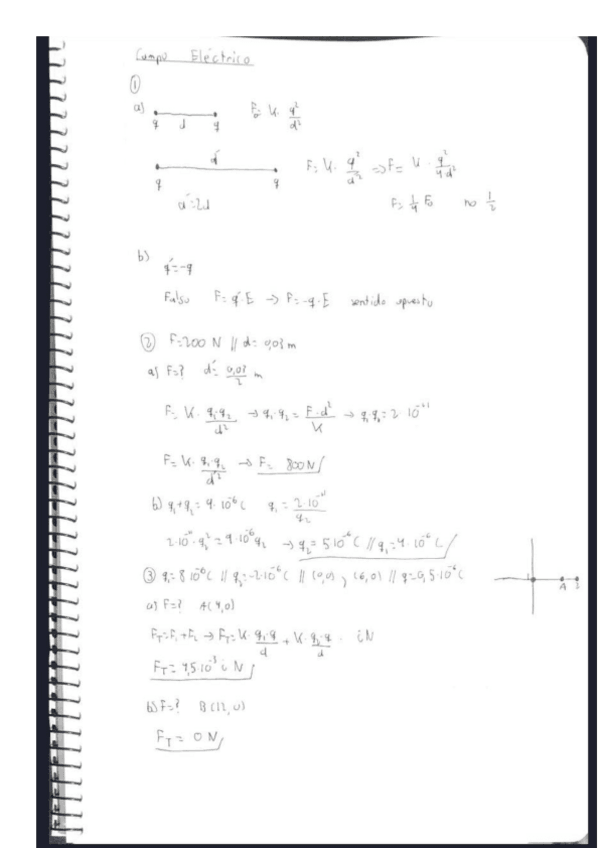 Campo Eléctrico
①
a) q d q F₀= K· q²/d²
d´
q q F= K· q²/d´² => F= K · q²/4d²
d´=2d F= 1/4 F₀ no 1/2
b) q´=-q
Falso F= q´·E → F=-q·E sentido opuesto
② F=200 N // d= 0,03 m
a) F=? d´= 0,03/2 m
F= K· q₁·q₂/d² → q₁·q₂= F·d²/K → q₁·q₂= 2·10⁻¹¹
F= K· q₁·q₂/d´² → F= 800 N/
b) q₁+q₂= 9·10⁻⁶ C q₁= 2·10⁻¹¹/q₂
2·10⁻¹¹·q₂² = 9·10⁻⁶q₂ → q₂= 5·10⁻⁶ C // q₁= 4·10⁻⁶ C/
③ q₁= 8·10⁻⁶ C // q₂=-2·10⁻⁶ C // (0,0), (6,0) // q=0,5·10⁻⁶ C
A B
a) F=? A(4,0)
F_T=F₁+F₂ → F_T= K· q₁·q/d + K· q₂·q/d · i N
F_T= 4,5·10⁻³ i N/
b) F=? B(12,0)
F_T= 0 N/